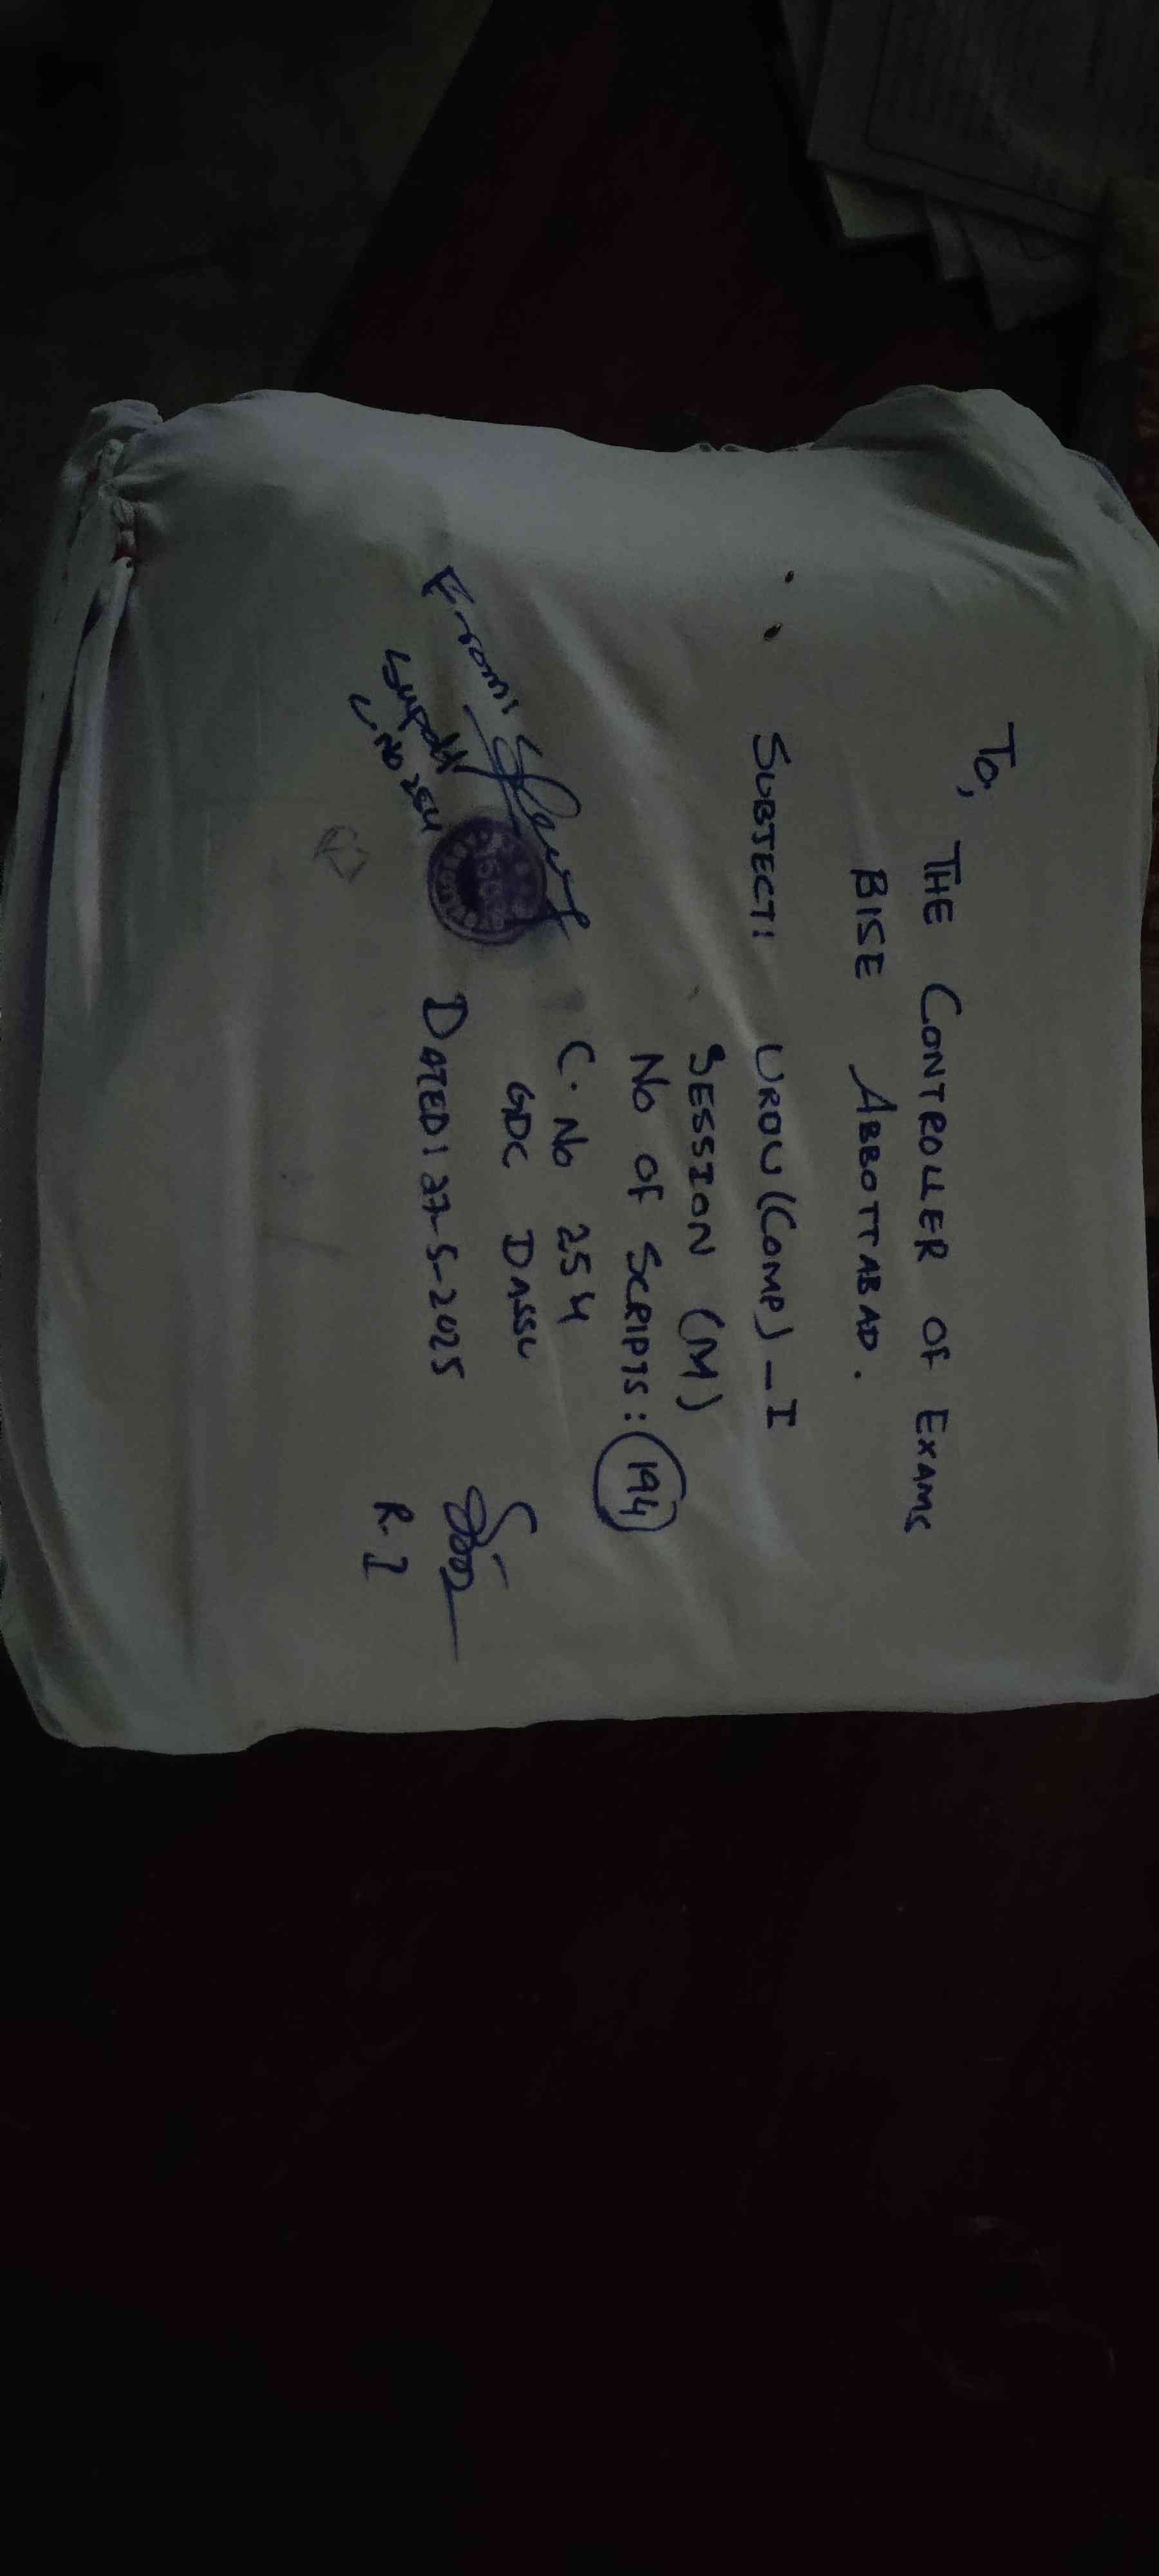 To,
THE CONTROLLER OF EXAMS
BISE ABBOTTABAD.
SUBJECT: URDU (COMP) - I
SESSION (M)
No OF SCRIPTS: 194
C. No 254
GDC DASSU
DATED: 27-5-2025
From:
Supdtt
C No 254
R. I